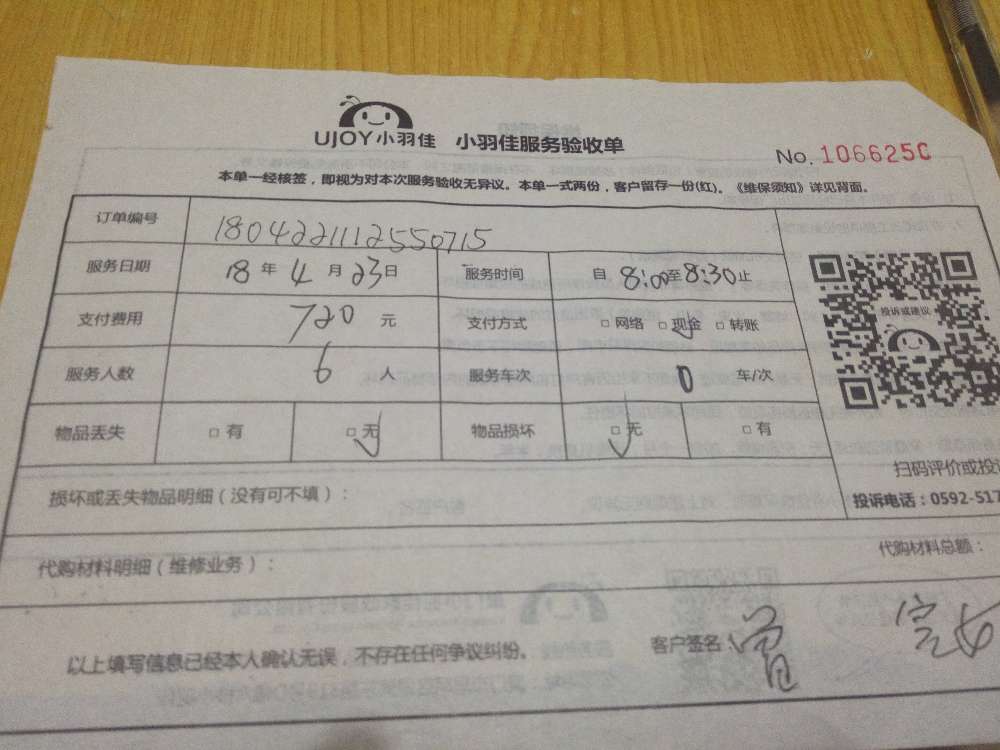 UJOY小羽佳 小羽佳服务验收单
No. 106625
本单一经核签，即视为对本次服务验收无异议。本单一式两份，客户留存一份(红)。《维保须知》详见背面。
订单编号 18042211125550715
服务日期 18 年 4 月 23 日 服务时间 自 8:00 至 8:30 止
支付费用 720 元 支付方式 □ 网络 □ 现金 □ 转账
投诉或建议
服务人数 6 人 服务车次 0 车/次
物品丢失 □ 有 □ 无 物品损坏 □ 无 □ 有
扫码评价或投
损坏或丢失物品明细（没有可不填）：
投诉电话：0592-517
代购材料明细（维修业务）：
代购材料总额：
以上填写信息已经本人确认无误，不存在任何争议纠纷。 客户签名：